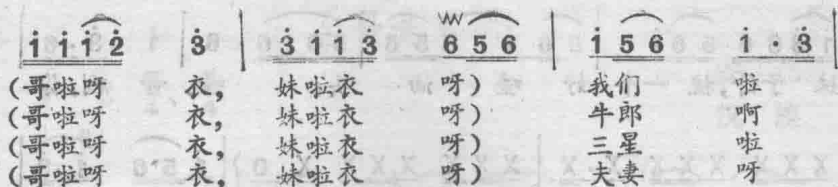 i̇ i̇ i̇ 2̇ 3̇ | 3̇ 1̇ i̇ 3̇ 6̇ 5 6 | i̇ 5 6 i̇ · 3̇ |
(哥啦呀 衣, 妹啦衣 呀) 我们 啦
(哥啦呀 衣, 妹啦衣 呀) 牛郎 啊
(哥啦呀 衣, 妹啦衣 呀) 三星 啦
(哥啦呀 衣, 妹啦衣 呀) 夫妻 呀